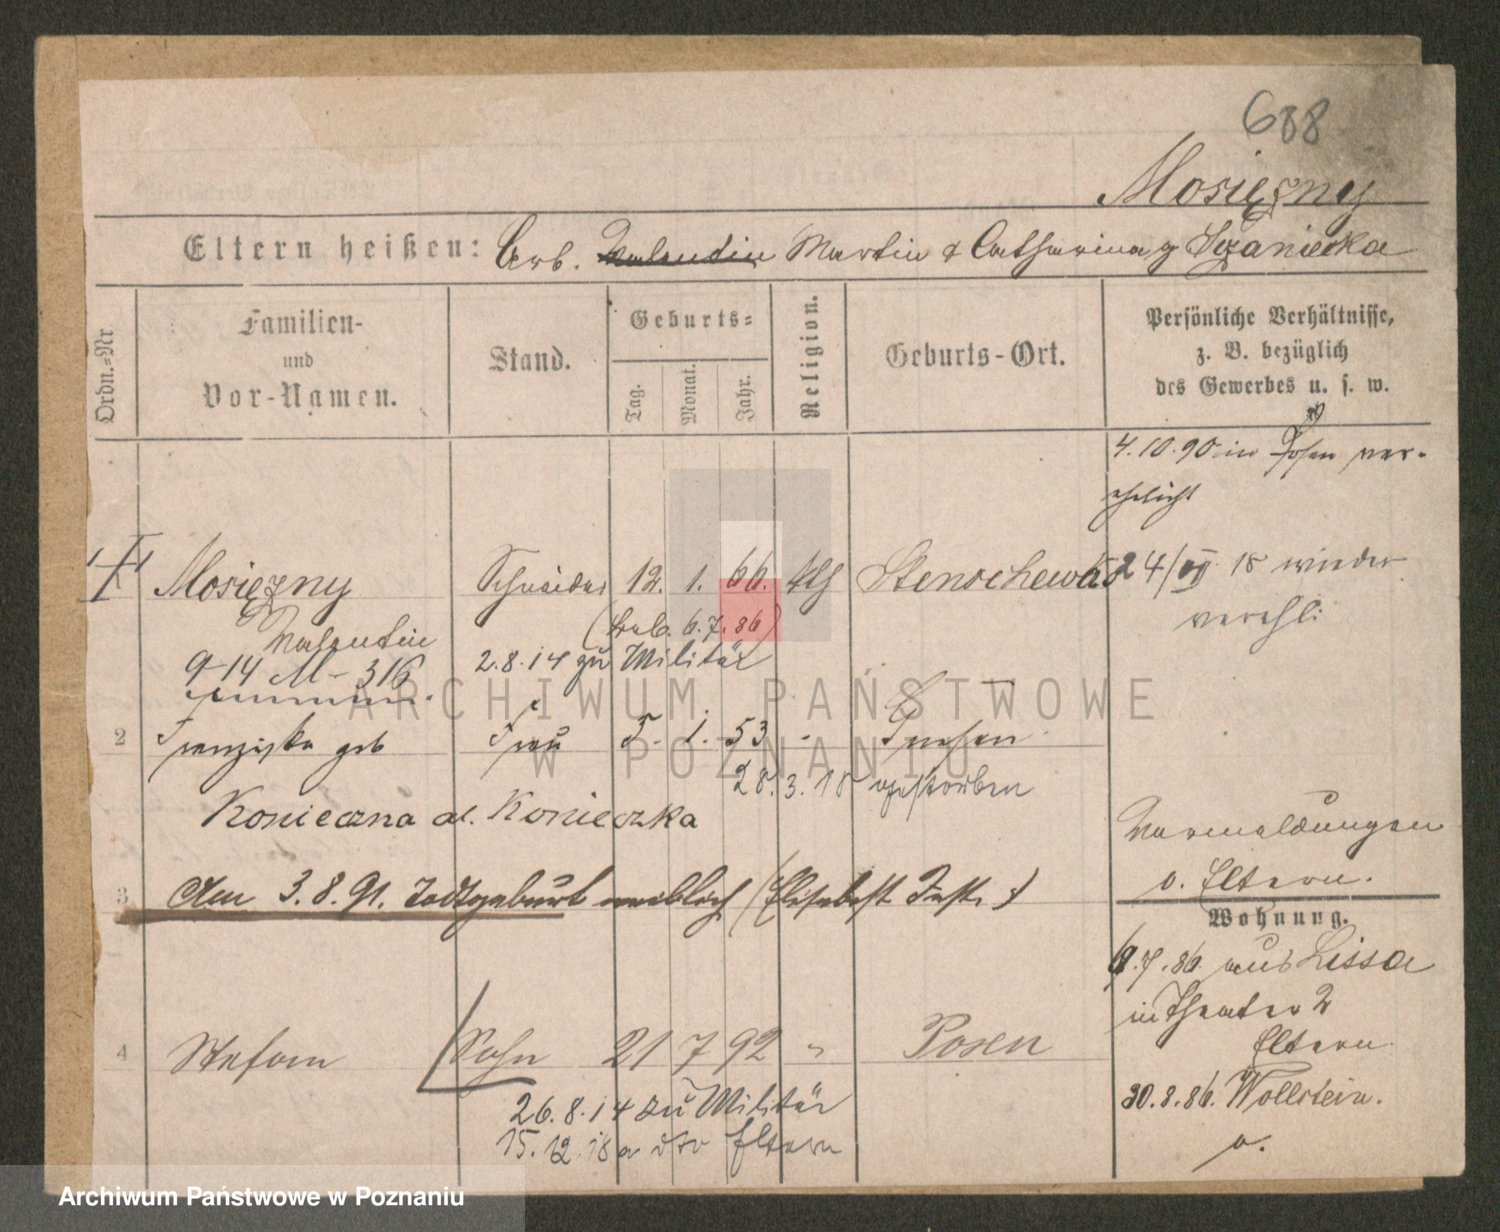 688
Mosiężny
Eltern heißen: Arb. Valentin Martin & Catharina g Szaniecka
Ordn.-Nr
Familien-
und
Vor-Namen.
Stand.
Geburts-
Tag.
Monat.
Jahr.
Religion.
Geburts-Ort.
Persönliche Verhältnisse,
z. B. bezüglich
des Gewerbes u. s. w.
4.10.90 in Posen ver-
ehelicht
1 Mosiężny Schneider 12. 1. 66. kth Stenschewo
24/VI 18 wieder
verehl:
Valentin
(6.7.86)
9-14 M- 316
2.8.14 zu Militär
2 Franziska geb Frau 5. 1. 53 - Gnesen
28.3.18 gestorben
Konieczna al. Konieczka
Vormeldungen
b. Eltern.
3 Am 3.8.91. Todtgeburt weiblich (Elisabeth
Wohnung.
6.7.86 aus Lissa
in Theater 2
Eltern
4 Stefan Sohn 21 7 92 " Posen
30.8.86. Wollstein.
26.8.14 zu Militär
15.12.18 a d Eltern
a.
ARCHIWUM PAŃSTWOWE
W POZNANIU
Archiwum Państwowe w Poznaniu